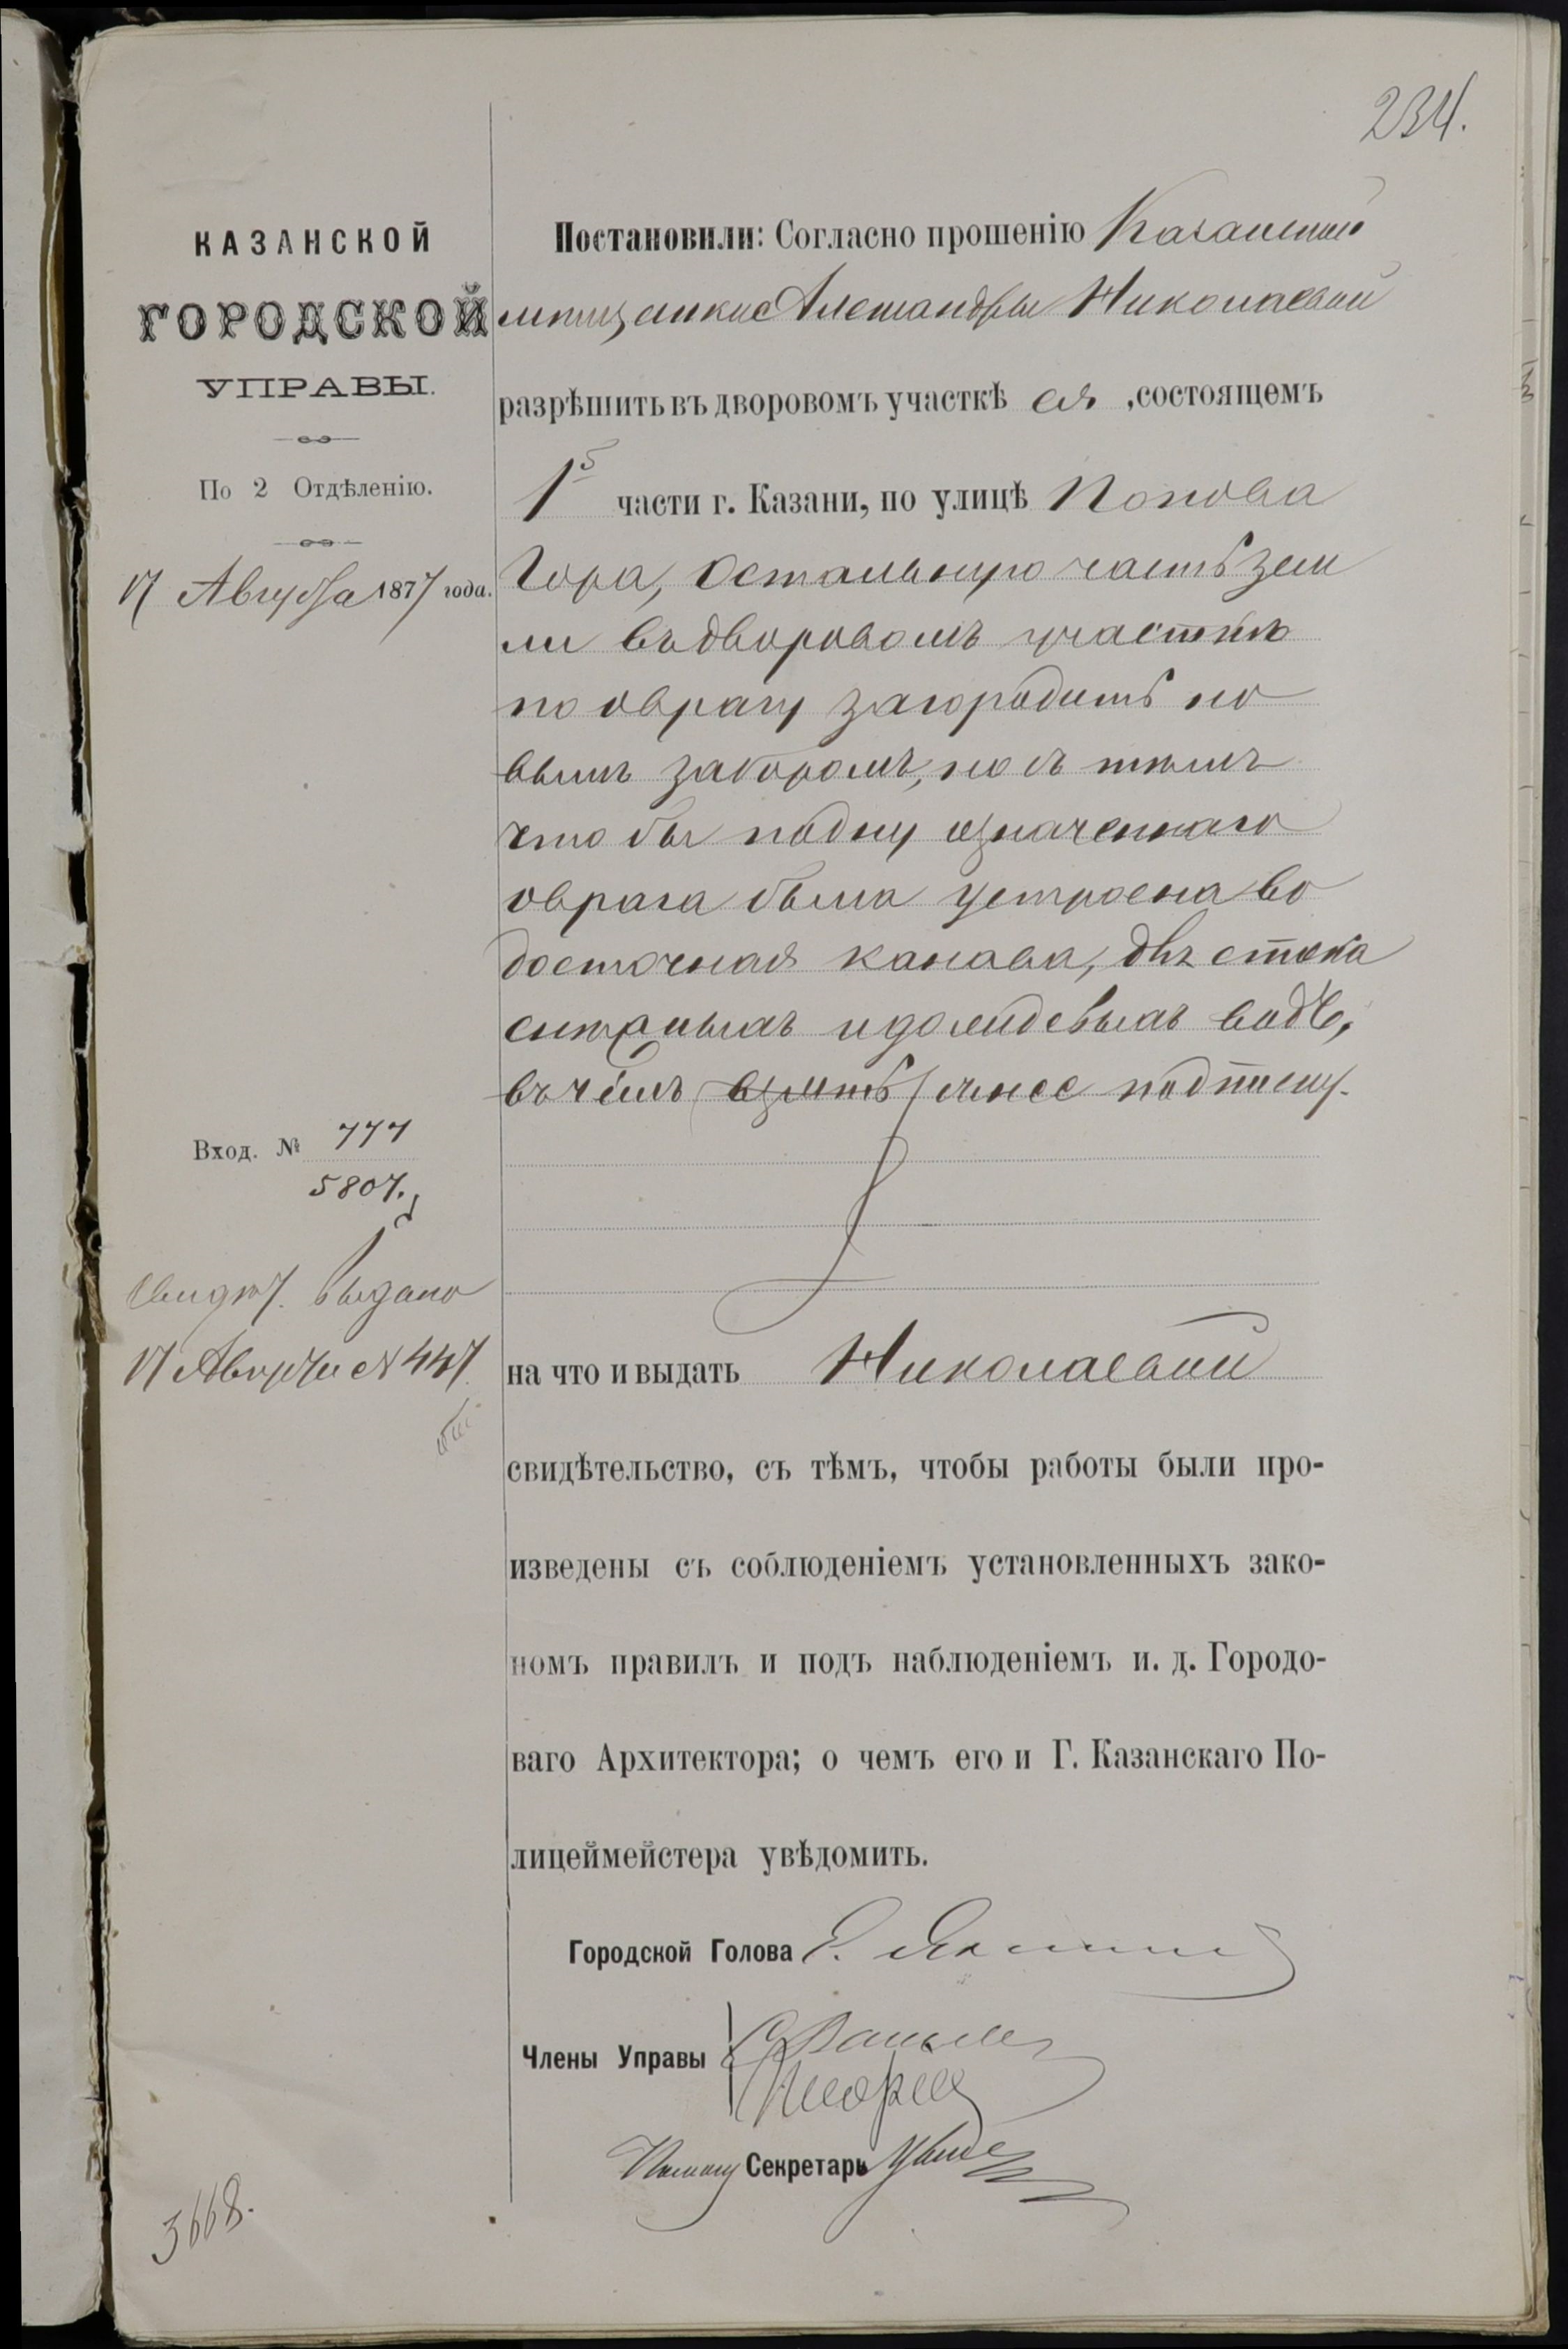 234.
КАЗАНСКОЙ
ГОРОДСКОЙ
УПРАВЫ.
По 2 Отдѣленію.
17 Августа 1877 года.
Вход. № 777
5807.
Свидѣт. выдано
17 Августа № 447
3668.
Постановили: Согласно прошенію Казанской
мѣщанки Александры Николаевой
разрѣшить въ дворовомъ участкѣ ея, состоящемъ
1й части г. Казани, по улицѣ Попова
Гора, остальную часть зем
ли въ дворовомъ участкѣ
по оврагу загородить но
вымъ заборомъ, но съ тѣмъ
что бы подну означеннаго
оврага была устроена во
досточная канава, для стока
снѣговымъ и дождевымъ водъ,
въ чемъ взять с нее подписку.
на что и выдать Николаевой
свидѣтельство, съ тѣмъ, чтобы работы были про-
изведены съ соблюденіемъ установленныхъ зако-
номъ правилъ и подъ наблюденіемъ и. д. Городо-
ваго Архитектора; о чемъ его и Г. Казанскаго По-
лицеймейстера увѣдомить.
Городской Голова
Члены Управы
Секретарь